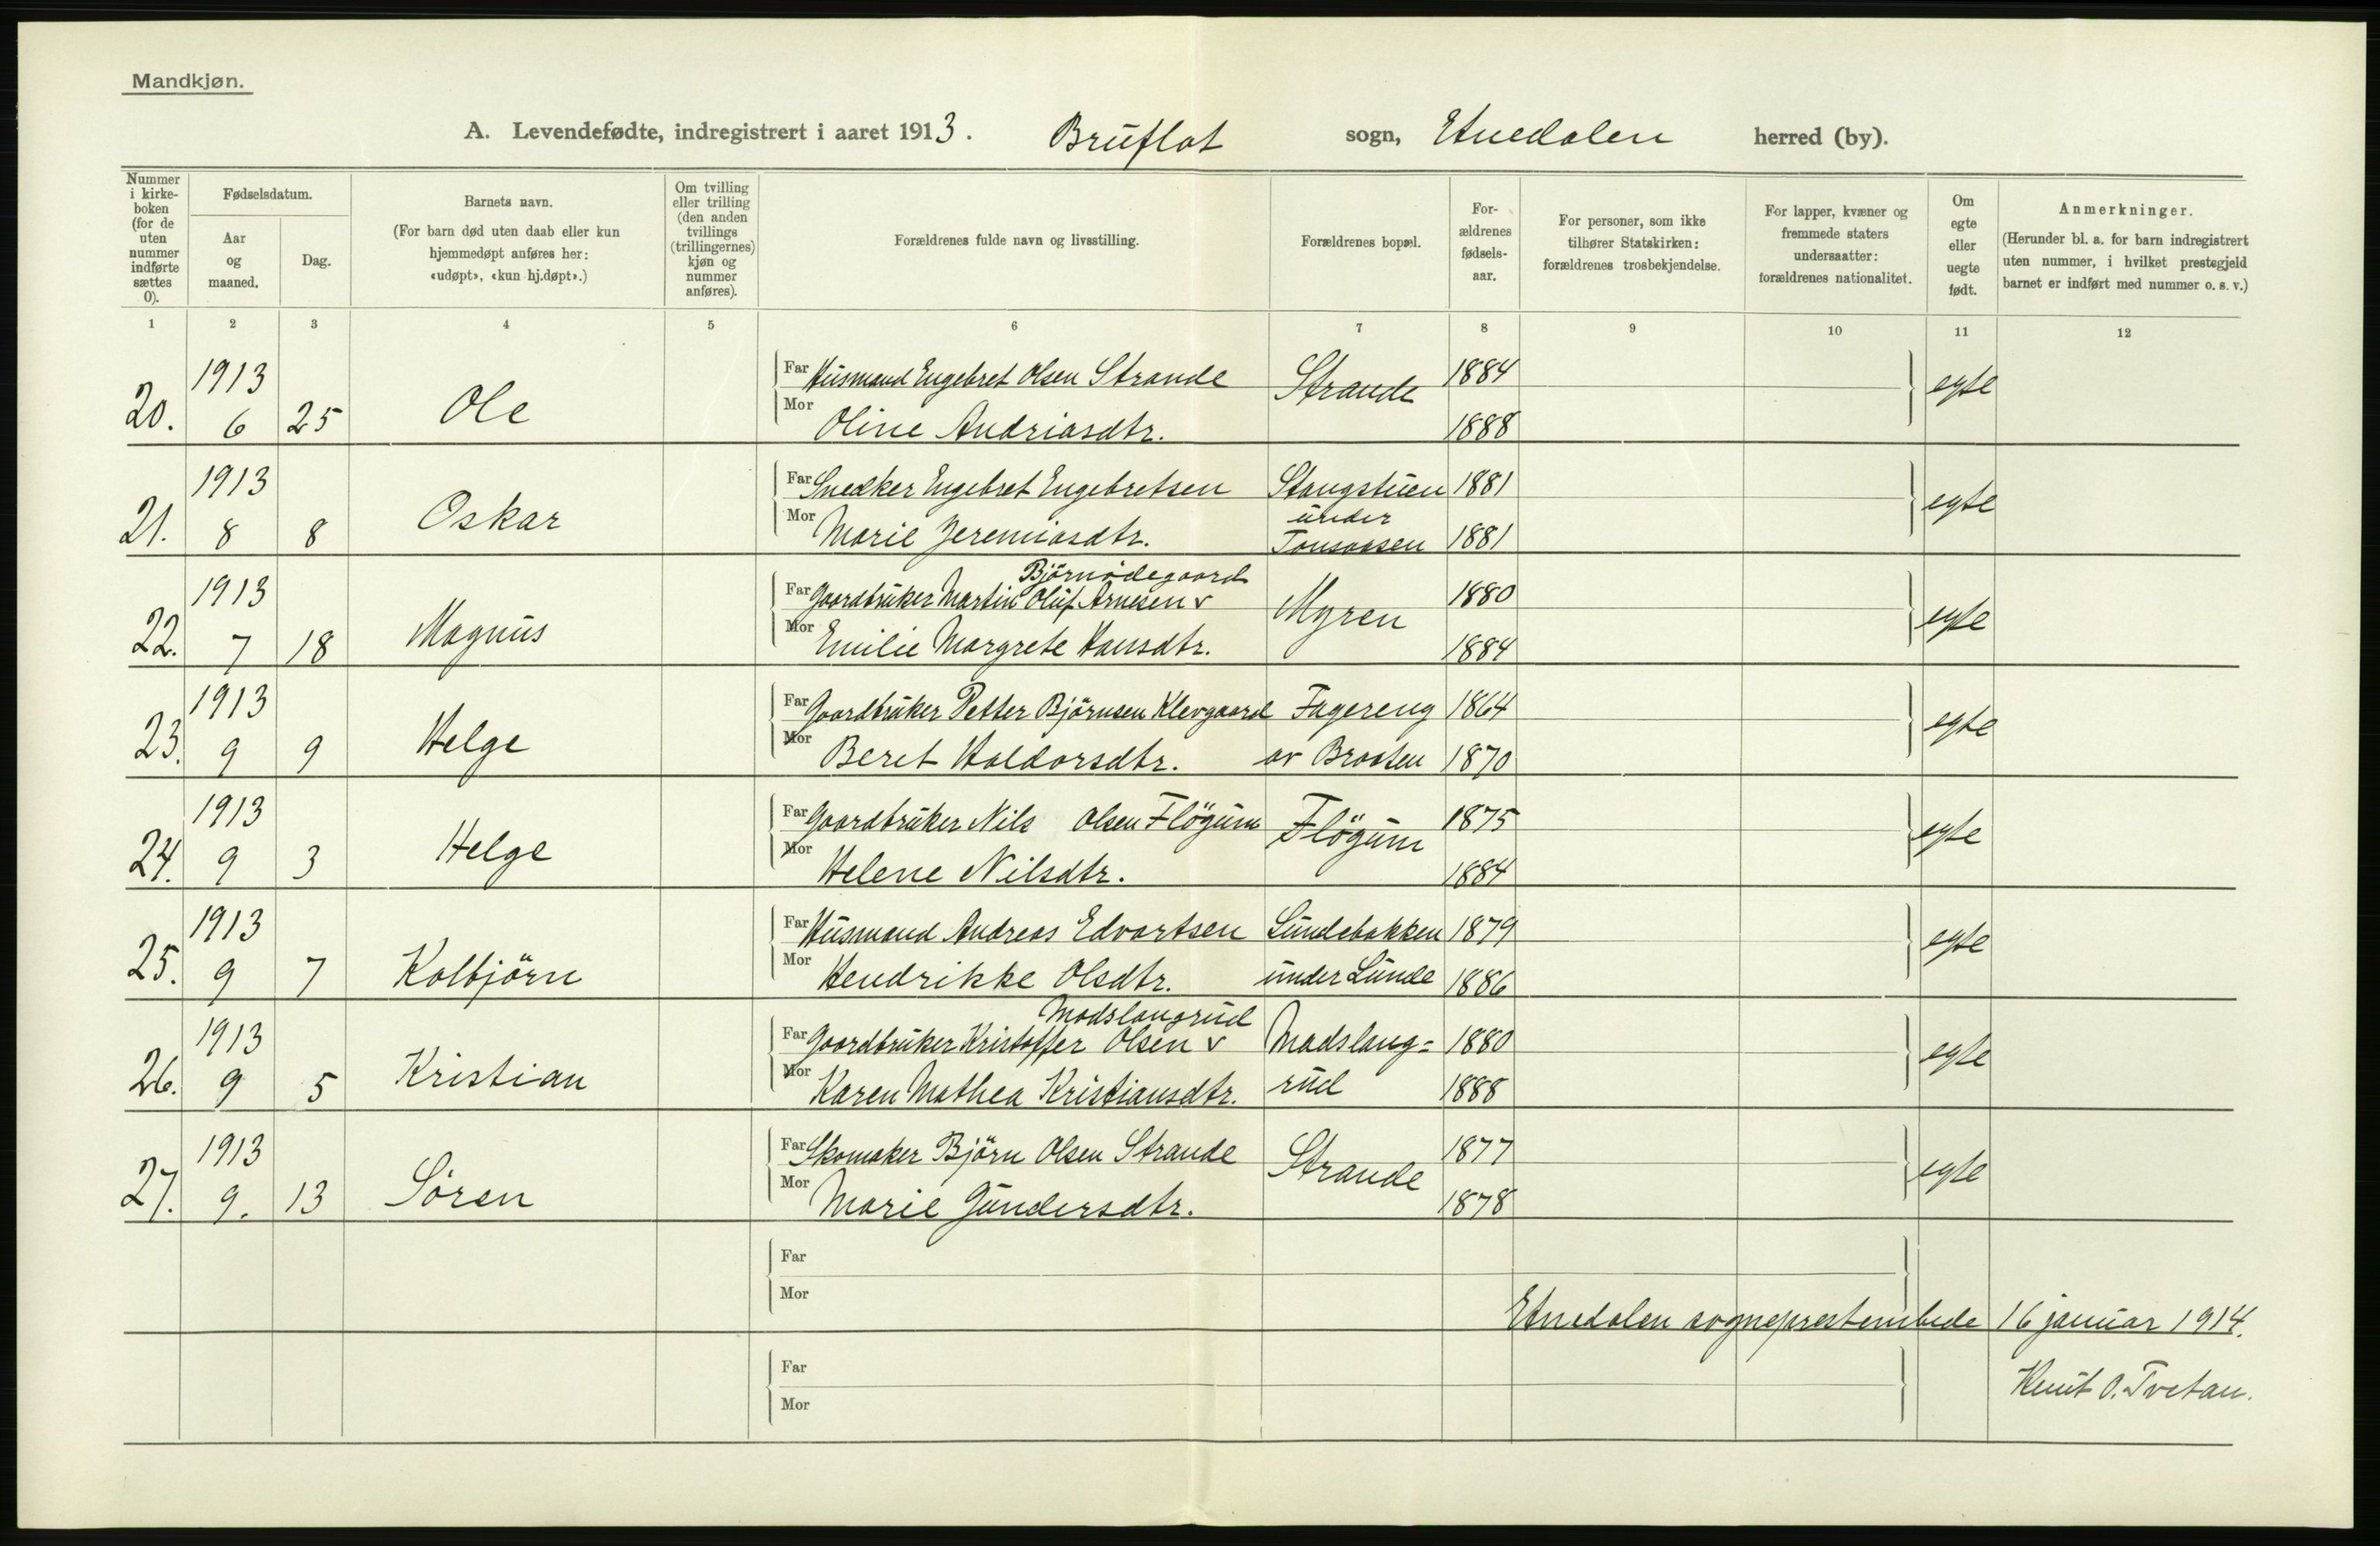 Mandkjøn.
A. Levendefødte, indregistrert i aaret 1913. Bruflat sogn, Etnedalen herred (by).
Nummer i kirke-boken (for de uten nummer indførte sættes 0).
Fødselsdatum.
Aar og maaned.
Dag.
Barnets navn.
(For barn død uten daab eller kun hjemmedøpt anføres her: «udøpt», «kun hj.døpt».)
Om tvilling eller trilling (den anden tvillings (trillingernes) kjøn og nummer anføres).
Forældrenes fulde navn og livsstilling.
Forældrenes bopæl.
For-ældrenes fødsels-aar.
For personer, som ikke tilhører Statskirken: forældrenes trosbekjendelse.
For lapper, kvæner og fremmede staters undersaatter: forældrenes nationalitet.
Om egte eller uegte født.
Anmerkninger.
(Herunder bl. a. for barn indregistrert uten nummer, i hvilket prestegjeld barnet er indført med nummer o. s. v.)
1 2 3 4 5 6 7 8 9 10 11 12
20. 1913 6 25 Ole
Far Husmand Engebret Olsen Strande Strande 1884 egte
Mor Oline Andriasdtr. 1888
21. 1913 8 8 Oskar
Far Snedker Engebret Engebretsen Stangstuen 1881 egte
Mor Marie Jeremiasdtr. under Tonsaasen 1881
22. 1913 7 18 Magnus
Bjørnødegaard
Far Gaardbruker Martin Oluf Arnesen v Myren 1880 egte
Mor Emilie Margrete Hansdtr. 1884
23. 1913 9 9 Helge
Far Gaardbruker Petter Björnsen Klevgaard Fagereng 1864 egte
Mor Beret Haldorsdtr. av Braaten 1870
24. 1913 9 3 Helge
Far Gaardbruker Nils Olsen Flögum Flögum 1875 egte
Mor Helene Nilsdtr. 1884
25. 1913 9 7 Kolbjörn
Far Husmand Andreas Edvartsen Lundebakken 1879 egte
Mor Hendrikke Olsdtr. under Lunde 1886
26. 1913 9 5 Kristian
Madslangrud
Far Gaardbruker Kristoffer Olsen v Madslang= 1880 egte
Mor Karen Mathea Kristiansdtr. rud 1888
27. 1913 9. 13 Sören
Far Skomaker Björn Olsen Strande Strande 1877 egte
Mor Marie Gundersdtr. 1878
Far
Mor
Etnedalen sogneprestembede 16 januar 1914.
Far
Knut O. Tvetan.
Mor